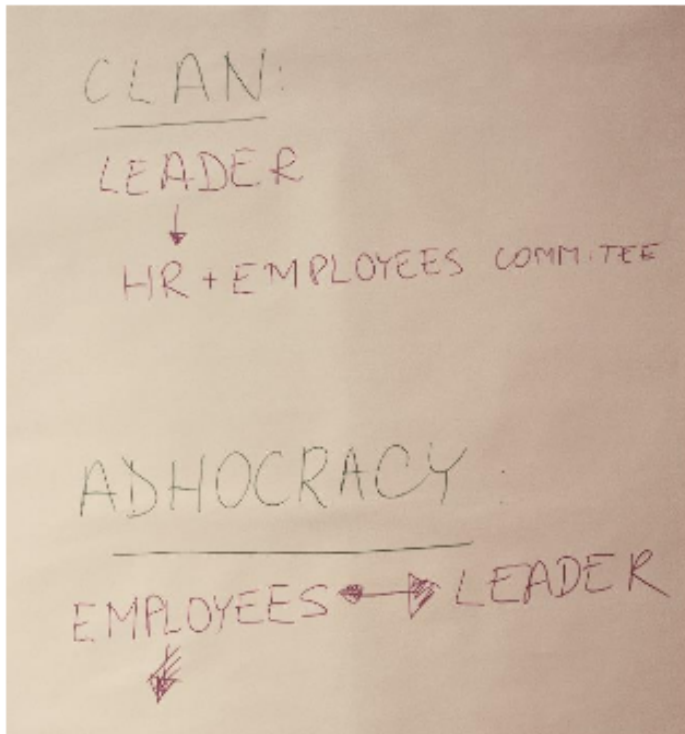 CLAN:
LEADER
HR + EMPLOYEES COMMITEE
ADHOCRACY:
EMPLOYEES ↔ LEADER